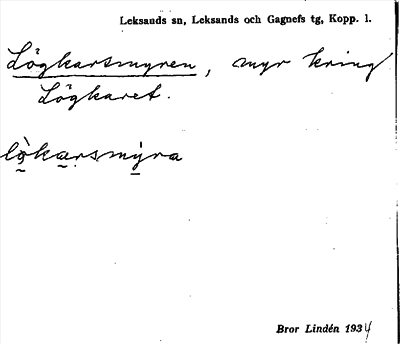 Leksands sn, Leksands och Gagnefs tg, Kopp. l.
Lögkarsmyren, myr kring
Lögkaret.
lò̰ka̰rsmy̠ra
Bror Lindén 1934